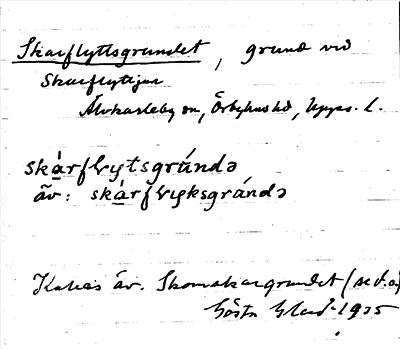 Skarflyttsgrundet, grund vid
Skarflyttjan
Älvkarleby sn, Örbyhus hd, Upps. l.
skárflytsgrúndə
äv: skárflyksgrúndə
Kallas äv. Skomakargrundet (se d.o)
Gösta 1935